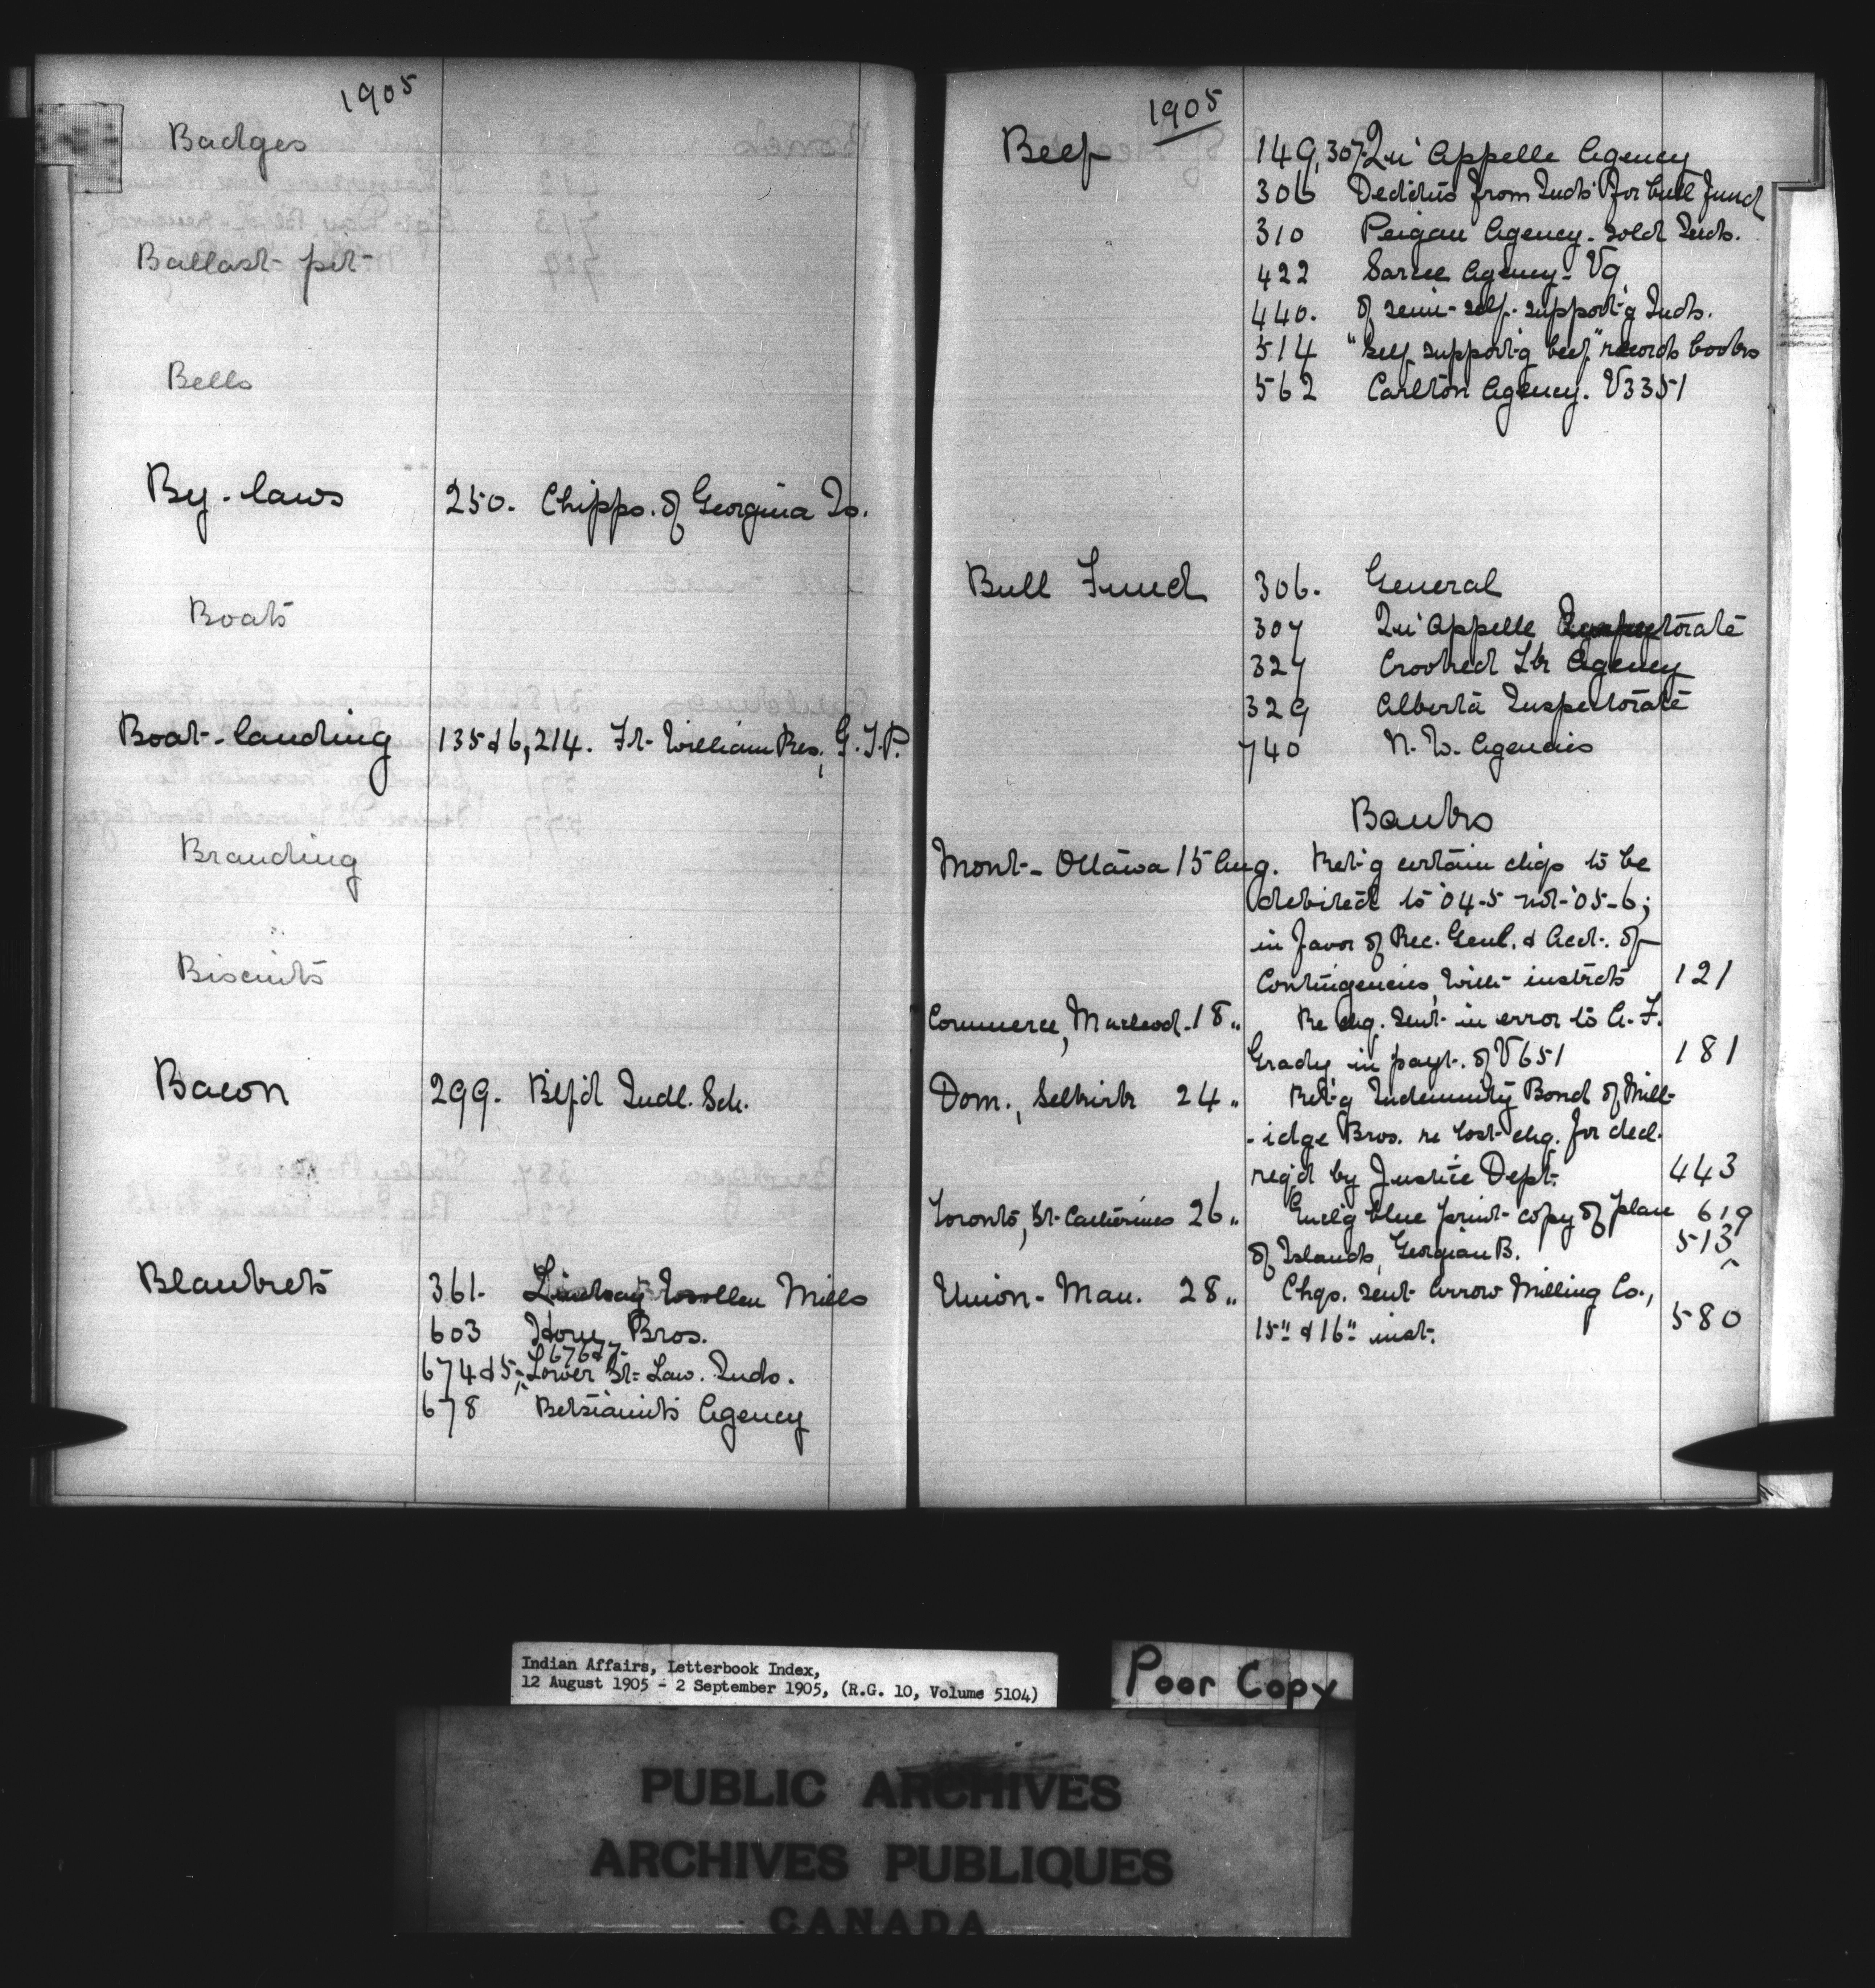 1905
Badges
Ballast pit
Bells
By-laws 250. Chipps. of Georgina Is.
Boats
Boat-landing 135 & 6, 214. Ft. William Res., G.T.P.
Branding
Biscuits
Bacon 299. B'lf'd Indl. Sch.
Blankets 361. Lindsay Woollen Mills
603 Horn Bros.
676 & 7
674 & 5, Lower St. Law. Inds.
678 Betsiamits Agency
1905
Beef 149, 307 Qu'Appelle Agency
306 Deductns from Inds' for bull fund
310 Peigan Agency. sold Inds.
422 Sarcee Agency - V9
440. of semi-self-support'g Inds.
514 "Self support'g beef" records books
562 Carlton Agency. V3351
Bull Fund 306. General
307 Qu'Appelle Inspectorate
327 Crooked Lk Agency
329 Alberta Inspectorate
740 N.W. Agencies
Banks
Mont - Ottawa 15 Aug. Ret'g certain chqs to be
debited to '04-5 not '05-6;
in favor of Rec. Genl. & Acct. of
Contingencies, with instrcts 121
Commerce, Macleod. 18 " Re chq. sent in error to A.F.
Grady in payt. of V651 181
Dom., Selkirk 24 " Ret'g Indemnity Bond of Mill-
-idge Bros. re lost chq. for decl.
req'd by Justice Dept. 443
Toronto, St. Catherines 26 " Encl'g blue print copy of plan 619
of Islands, Georgian B. 513
Union - Man. 28 " Chqs. sent Arrow Milling Co.,
15" & 16" inst. 580
Indian Affairs, Letterbook Index,
12 August 1905 - 2 September 1905, (R.G. 10, Volume 5104)
Poor Copy
PUBLIC ARCHIVES
ARCHIVES PUBLIQUES
CANADA